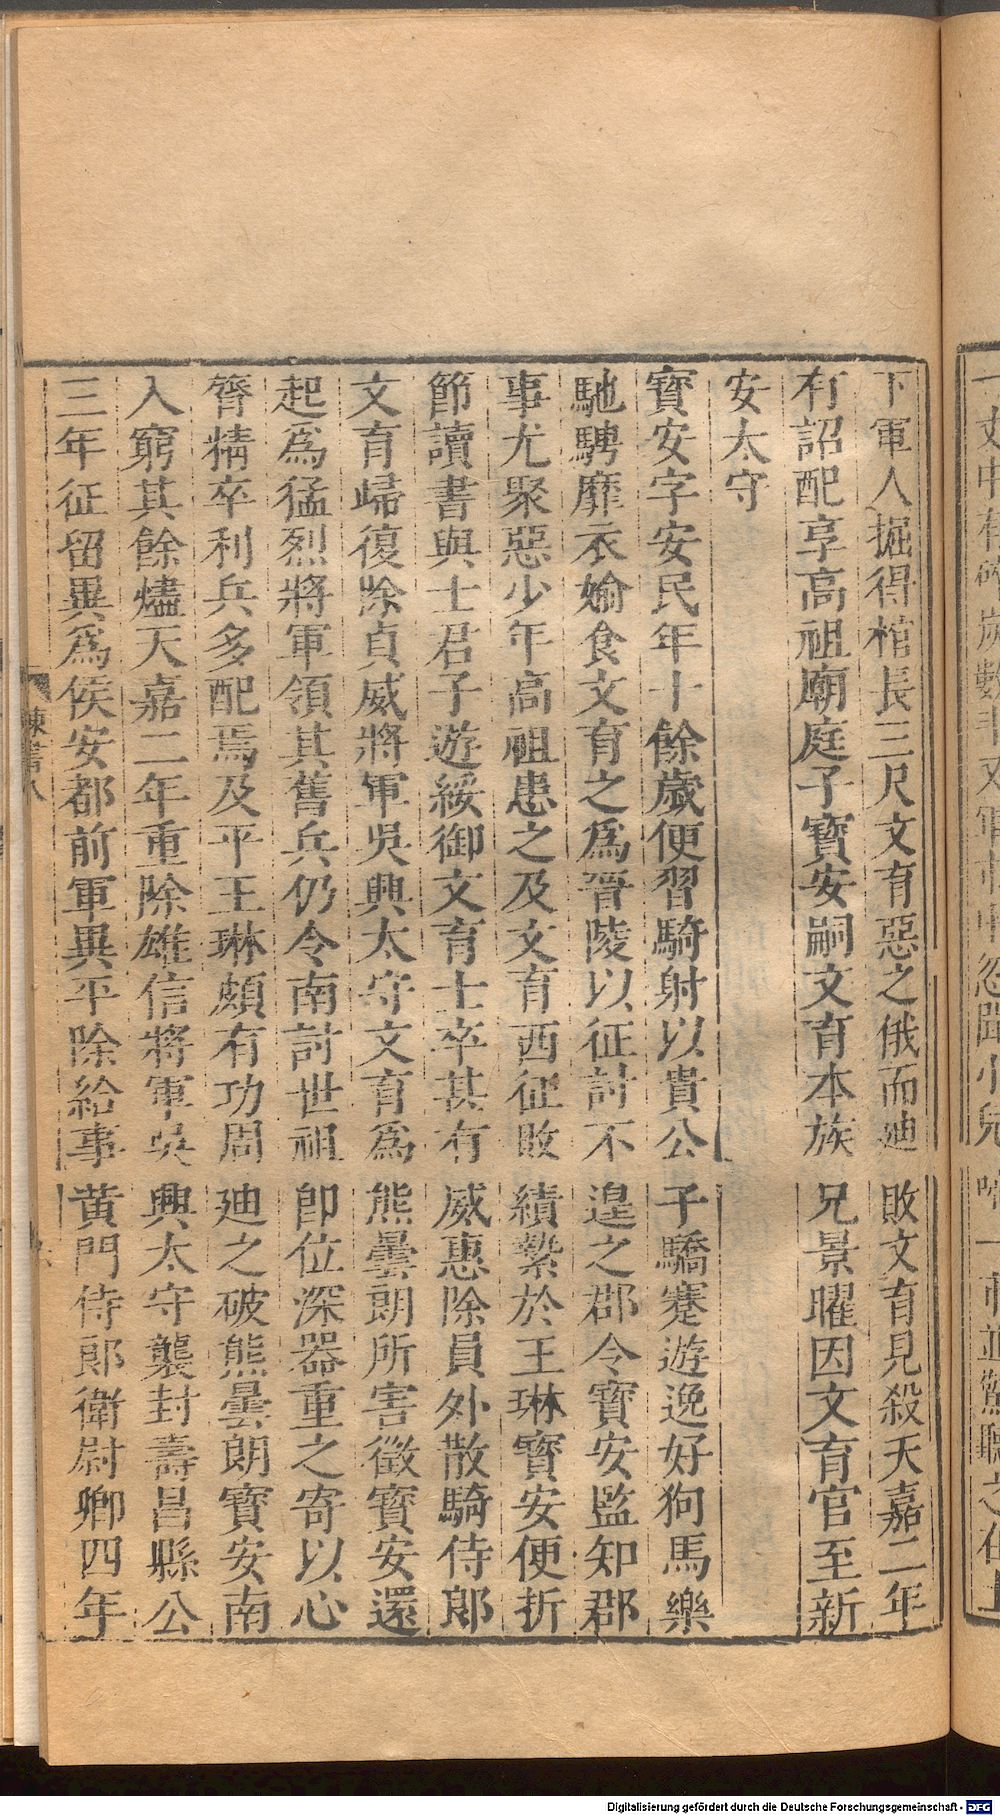 下軍人掘得棺長三尺文育惡之俄而迪敗文育見殺天嘉二年
有詔配享高祖廟庭子寶安嗣文育本族兄景曜因文育官至新
安太守
寶安字安民年十餘歲便習騎射以貴公子驕蹇遊逸好狗馬樂
馳騁靡衣媮食文育之爲晉陵以征討不遑之郡令寶安監知郡
事尤聚惡少年高祖患之及文育西征敗績縶於王琳寶安便折
節讀書與士君子遊綏御文育士卒甚有威惠除員外散騎侍郞
文育歸復除貞威將軍吳興太守文育爲熊曇朗所害徵寶安還
起爲猛烈將軍領其舊兵仍令南討世祖卽位深器重之寄以心
膂精卒利兵多配焉及平王琳頗有功周迪之破熊曇朗寶安南
入窮其餘燼天嘉二年重除雄信將軍吳興太守襲封壽昌縣公
三年征留異爲侯安都前軍異平除給事黃門侍郞衛尉卿四年
陳書八
Digitalisierung gefördert durch die Deutsche Forschungsgemeinschaft - DFG